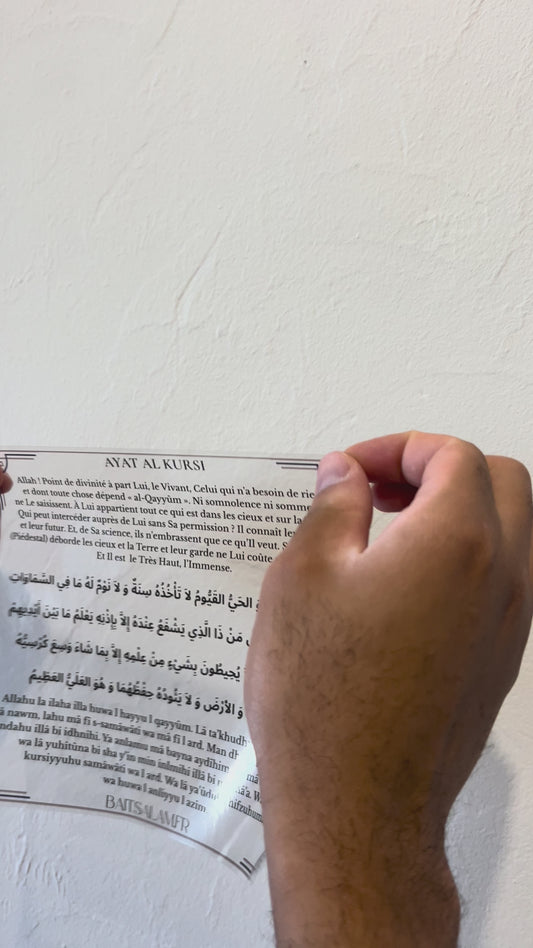 AYAT AL KURSI
Allah ! Point de divinité à part Lui, le Vivant, Celui qui n'a besoin de rie
et dont toute chose dépend « al-Qayyûm ». Ni somnolence ni somme
ne Le saisissent. À Lui appartient tout ce qui est dans les cieux et sur la
Qui peut intercéder auprès de Lui sans Sa permission ? Il connaît le
et leur futur. Et, de Sa science, ils n'embrassent que ce qu'Il veut. S
(Piédestal) déborde les cieux et la Terre et leur garde ne Lui coûte
Et Il est le Très Haut, l'Immense.
الحَيُّ القَيُّومُ لاَ تَأْخُذُهُ سِنَةٌ وَ لاَ نَوْمٌ لَهُ مَا فِي السَّمَاوَاتِ
مَنْ ذَا الَّذِي يَشْفَعُ عِنْدَهُ إِلاَّ بِإِذْنِهِ يَعْلَمُ مَا بَيْنَ أَيْدِيهِمْ
يُحِيطُونَ بِشَيْءٍ مِنْ عِلْمِهِ إِلاَّ بِمَا شَاءَ وَسِعَ كُرْسِيُّهُ
وَ الأَرْضَ وَ لاَ يَئُودُهُ حِفْظُهُمَا وَ هُوَ العَلَيُّ العَظِيمُ
Allahu la ilaha illa huwa l hayyu l qayyûm. Lâ ta'khudh
nawm, lahu mâ fi s-samâwâti wa mâ fi l ard. Man dh
ndahu illâ bi idhnihi. Ya'anlamu mâ bayna aydihim mâ
wa lâ yuhitûna bi sha y'in min inlmihi illâ bi
kursiyyuhu samâwâti wa l ard. Wa lâ ya'ûdu hifzuhum
wa huwa l anliyyu l azim
BAITSALAMFR